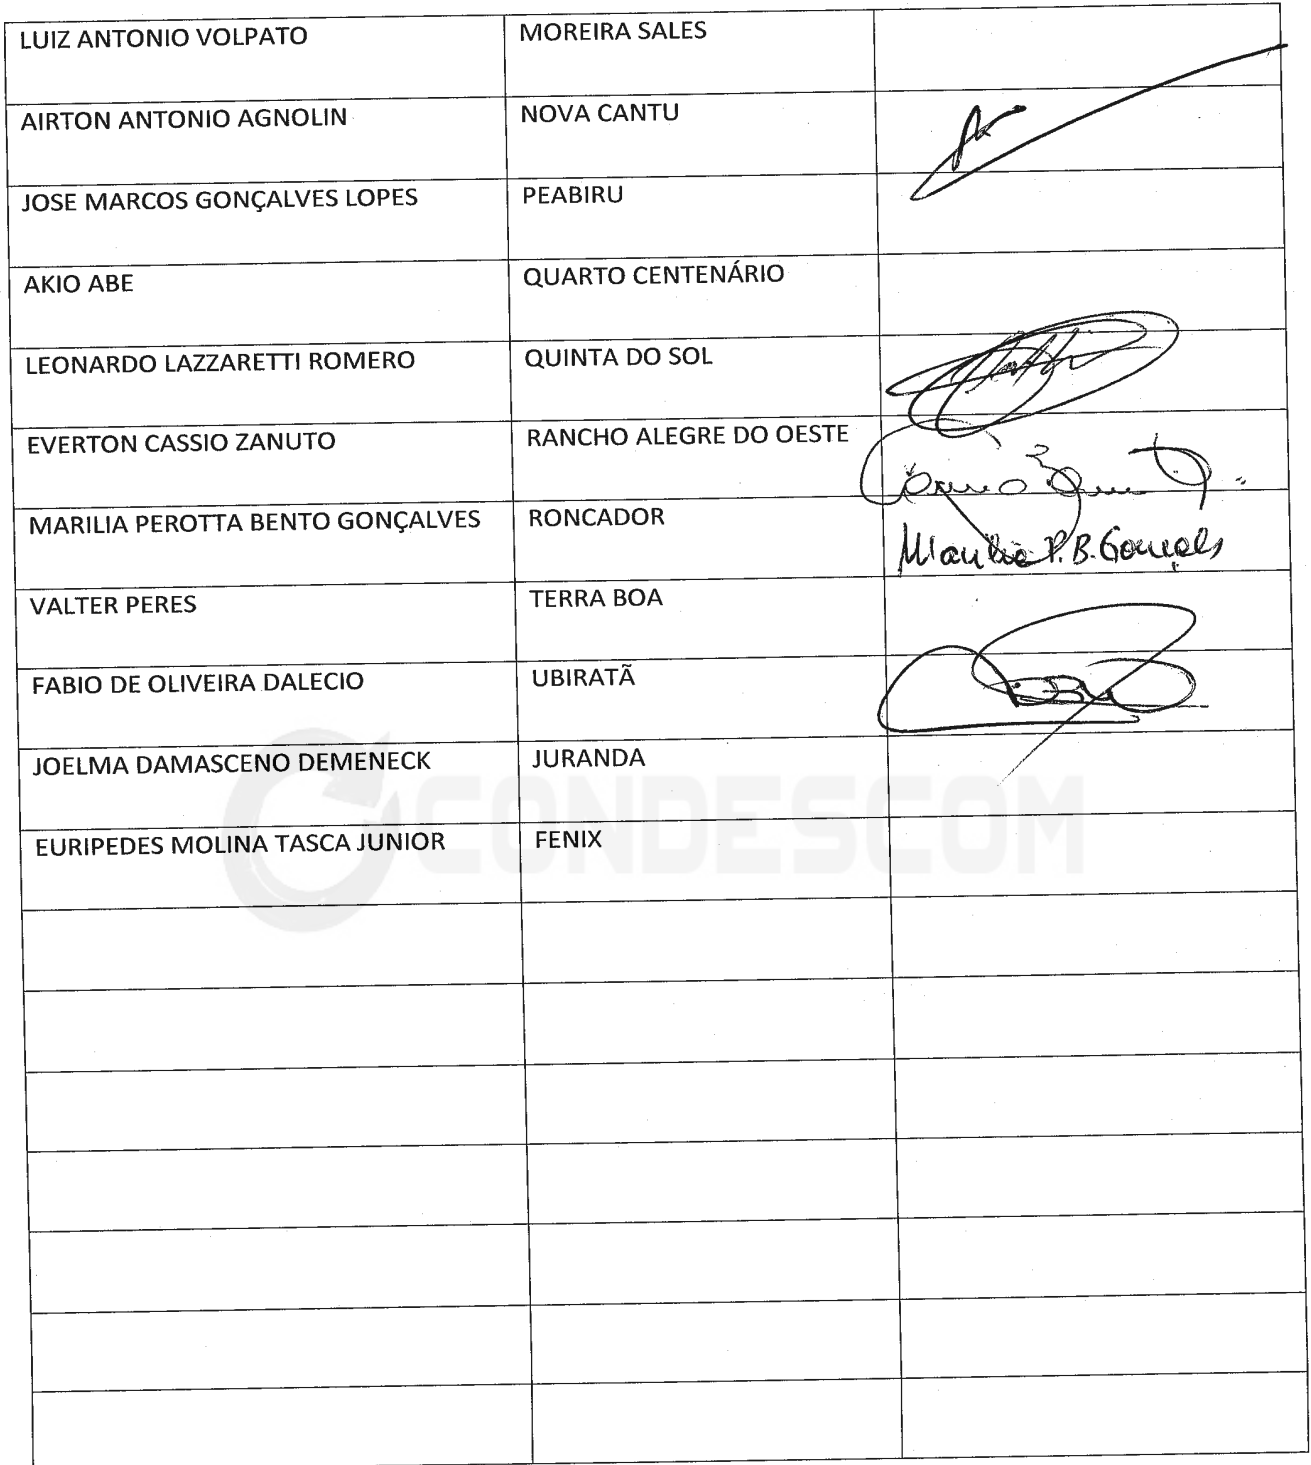 LUIZ ANTONIO VOLPATO MOREIRA SALES
AIRTON ANTONIO AGNOLIN NOVA CANTU
JOSE MARCOS GONÇALVES LOPES PEABIRU
AKIO ABE QUARTO CENTENÁRIO
LEONARDO LAZZARETTI ROMERO QUINTA DO SOL
EVERTON CASSIO ZANUTO RANCHO ALEGRE DO OESTE
MARILIA PEROTTA BENTO GONÇALVES RONCADOR Marilia P.B. Gonçalves
VALTER PERES TERRA BOA
FABIO DE OLIVEIRA DALECIO UBIRATÃ
JOELMA DAMASCENO DEMENECK JURANDA
CONDESCOM
EURIPEDES MOLINA TASCA JUNIOR FENIX